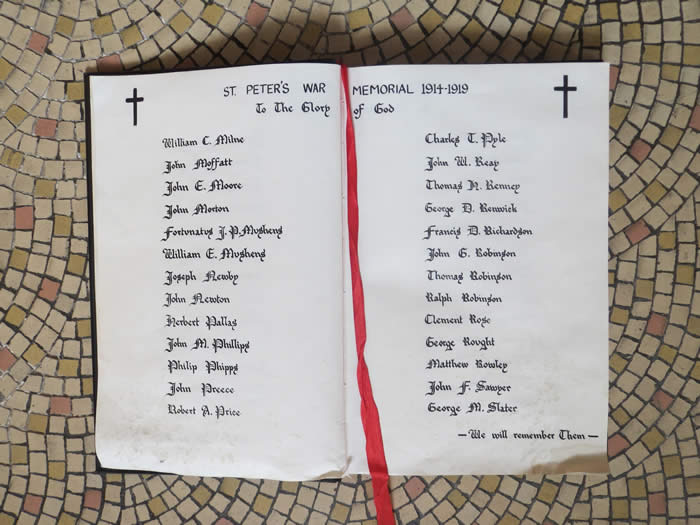 ST. PETER'S WAR MEMORIAL 1914-1919
To The Glory of God
William C. Milne
John Moffatt
John E. Moore
John Morton
Fortunatus J. P. Mushens
William E. Mushens
Joseph Newby
John Newton
Herbert Pallas
John M. Phillips
Philip Phipps
John Preece
Robert A. Price
Charles T. Pyle
John W. Reay
Thomas H. Renney
George D. Renwick
Francis D. Richardson
John G. Robinson
Thomas Robinson
Ralph Robinson
Clement Rose
George Rought
Matthew Rowley
John F. Sawyer
George M. Slater
— We will remember Them —